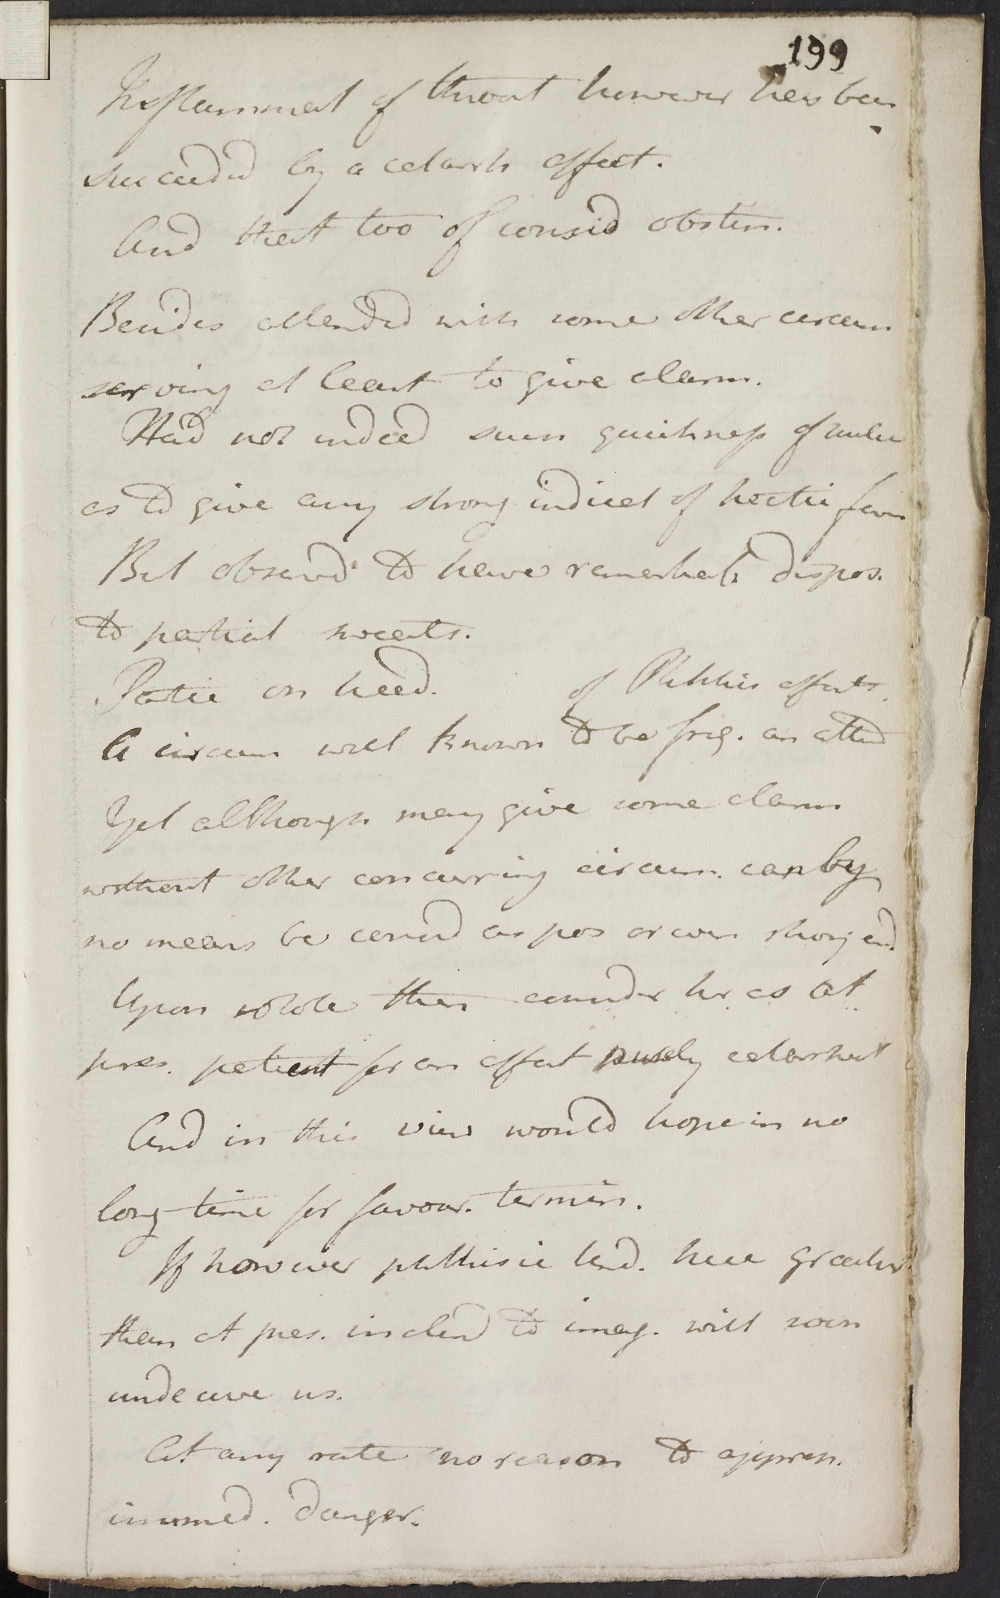 199
Inflammat of throat however has been
succeeded by a catarrh affect.
And that too of consid obstin.
Besides attended with some other circum
serving at least to give alarm.
Had not indeed such quickness of pulse
as to give any strong indicat of hectic fever
But observd to have remarkab. dispos.
to partial sweats.
Partic on head.
of Phthisic affects.
A circum well known to be freq. an attend
Yet although may give some alarm
without other concurring circum. can by
no means be considd as pos or even strong evid.
Upon whole then consider her as at
pres. patient for an affect purely catarrhal
And in this view would hope in no
long time for favour. termin.
If however phthisic tend. here greater
than at pres. inclind to imag. will soon
undeceive us.
At any rate no reason to appreh.
immed. danger.